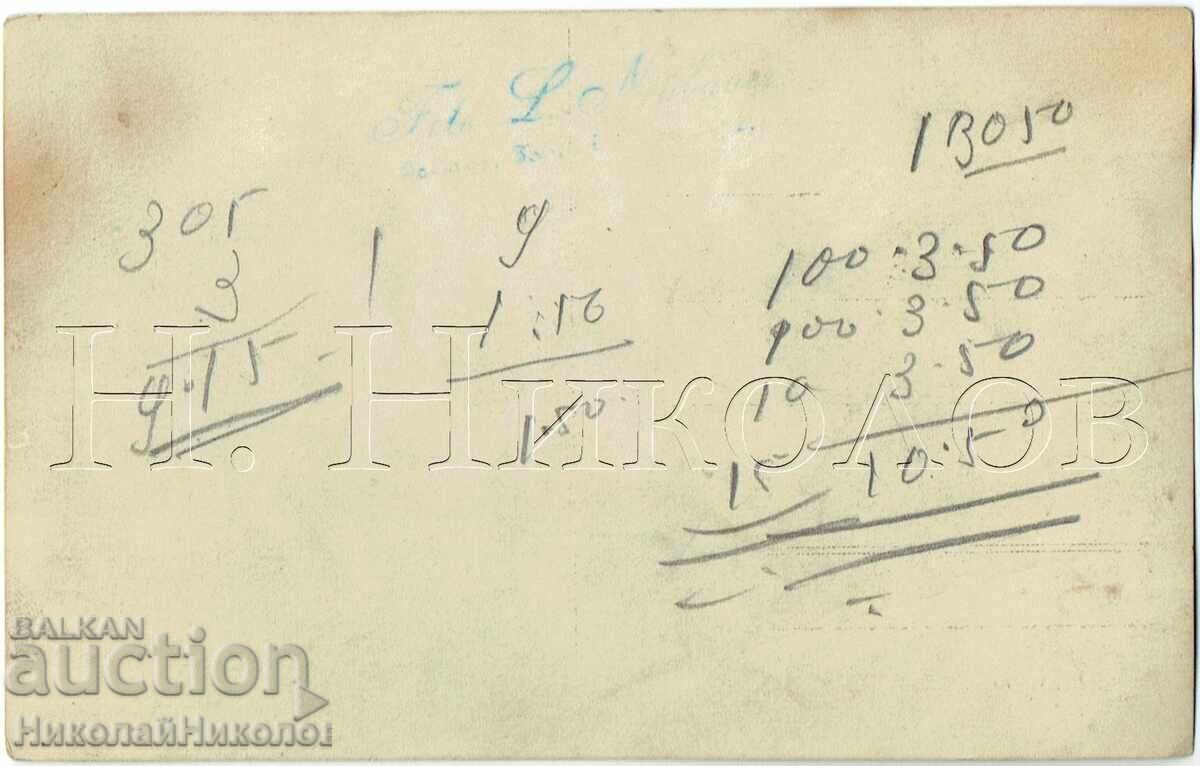 13050
305
3
9.15
1
9
1:50
1.50
100.3.50
100.3.50
10 3.50
15 10.50
Н. Николов
BALKAN
auction
НиколайНиколов